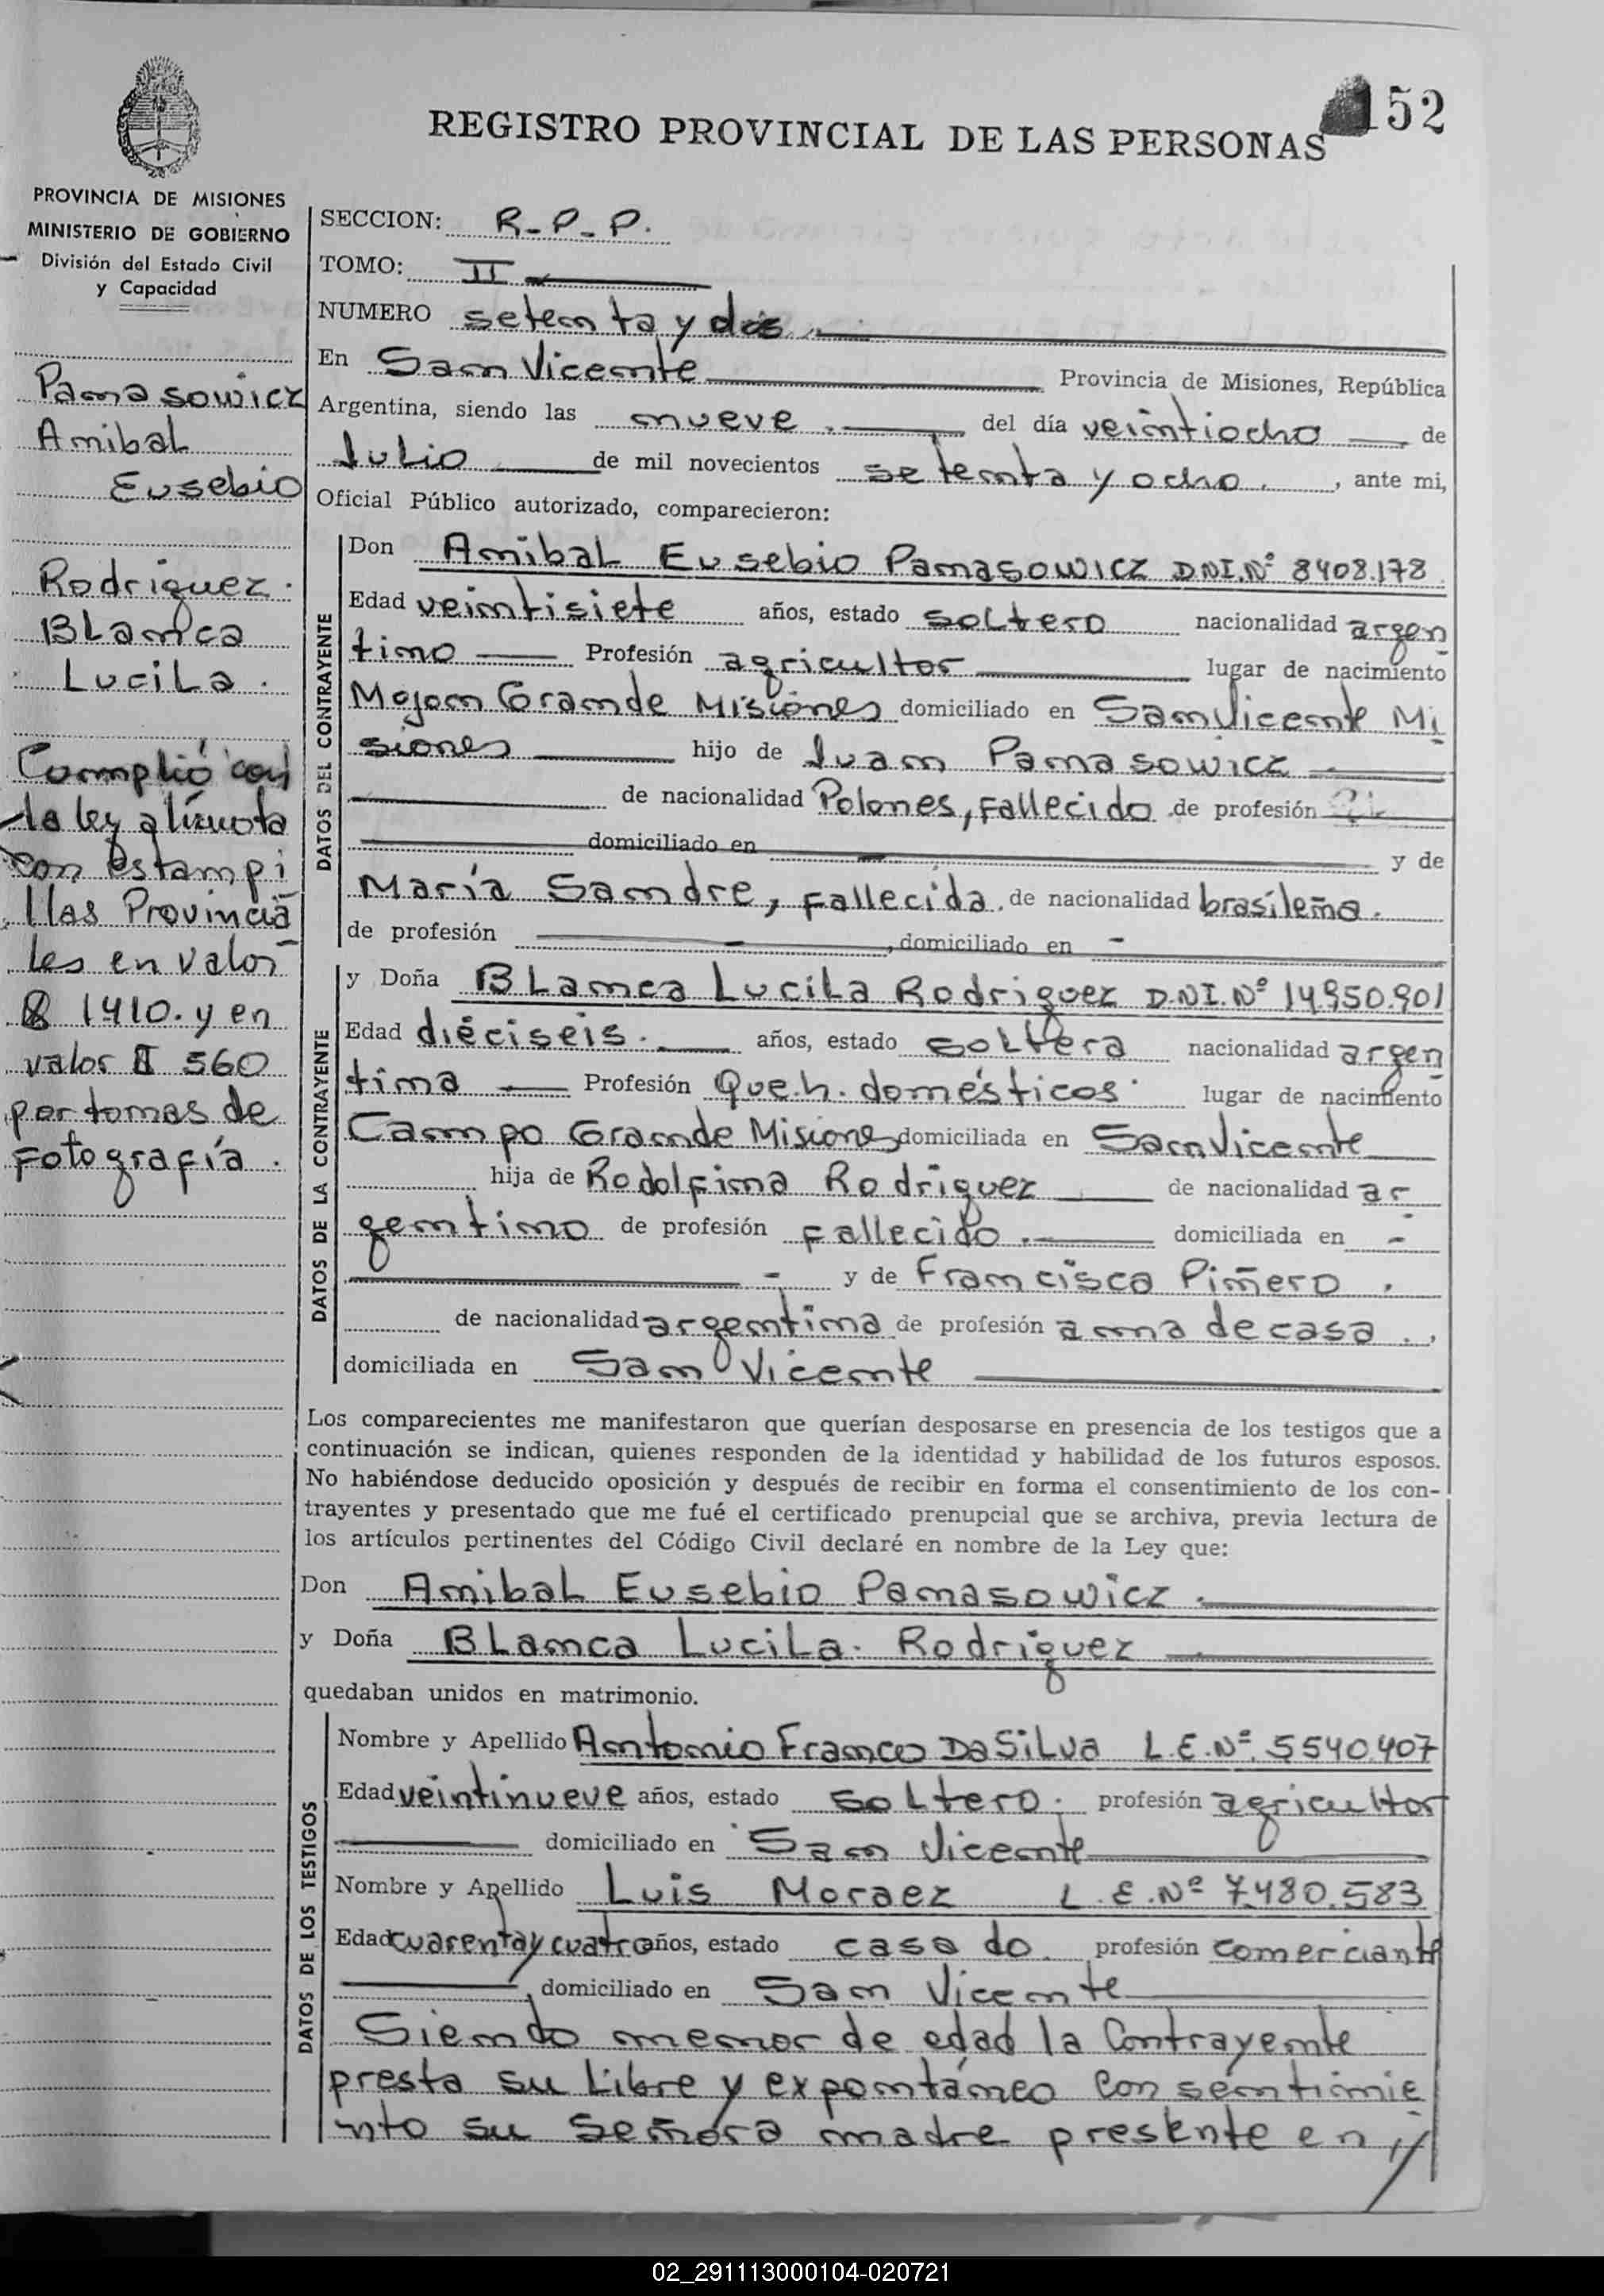 152
REGISTRO PROVINCIAL DE LAS PERSONAS
PROVINCIA DE MISIONES
MINISTERIO DE GOBIERNO
División del Estado Civil
y Capacidad
Panasowicz
Anibal
Eusebio
Rodriguez.
BLanca
LuciLa.
Cumplió con
la ley
con estampi
llas Provincia
les en valor
$ 1410. y en
valor $ 560
por tomas de
Fotografía.
SECCION: R-P-P.
TOMO: II
NUMERO setenta y dos
En San Vicente Provincia de Misiones, República
Argentina, siendo las nueve. del día veintiocho de
Julio de mil novecientos setenta y ocho., ante mi,
Oficial Público autorizado, comparecieron:
DATOS DEL CONTRAYENTE
Don AnibaL Eusebio Panasowicz DNI.Nº 8408.178
Edad veintisiete años, estado soLtero nacionalidad argen
tino Profesión agricultor lugar de nacimiento
Mojon Grande Misiones domiciliado en San Vicente Mi
siones hijo de Juan Panasowicz
de nacionalidad Polones, Fallecido de profesión
domiciliado en y de
María Sandre, Fallecida. de nacionalidad brasileña.
de profesión , domiciliado en -
DATOS DE LA CONTRAYENTE
y Doña BLanca LuciLa Rodriguez D.NI.Nº 14.950.901
Edad dieciseis. años, estado soLtera nacionalidad argen
tina Profesión Que.h. domésticos lugar de nacimiento
Campo Grande Misiones domiciliada en San Vicente
hija de Rodolfina Rodriguez de nacionalidad ar
gentino de profesión Fallecido. domiciliada en -
- y de Francisca Piñero.
de nacionalidad argentina de profesión ama de casa.,
domiciliada en San Vicente
Los comparecientes me manifestaron que querían desposarse en presencia de los testigos que a
continuación se indican, quienes responden de la identidad y habilidad de los futuros esposos.
No habiéndose deducido oposición y después de recibir en forma el consentimiento de los con-
trayentes y presentado que me fué el certificado prenupcial que se archiva, previa lectura de
los artículos pertinentes del Código Civil declaré en nombre de la Ley que:
Don AnibaL Eusebio Panasowicz.
y Doña BLanca LuciLa. Rodriguez
quedaban unidos en matrimonio.
DATOS DE LOS TESTIGOS
Nombre y Apellido Antonio Franco DaSiLva L.E.Nº. 5540.407
Edad veintinueve años, estado soLtero. profesión agricultor
domiciliado en San Vicente
Nombre y Apellido Luis Moraez L.E.Nº 7.480.583
Edad cuarenta y cuatro años, estado casado. profesión comerciante
, domiciliado en San Vicente
Siendo menor de edad la Contrayente
presta su Libre y expontáneo consentimie
nto su señora madre presente en //
02_291113000104-020721